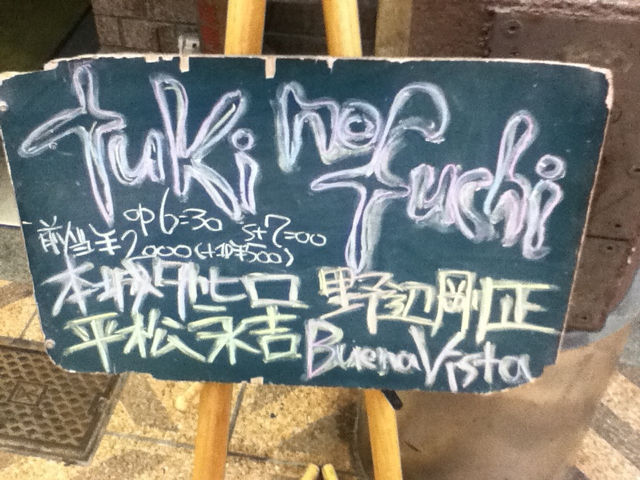 Yuki no fuchi
OP6=30 st7=00
前当¥2000(+1D¥500)
野辺剛正
平松永吉 Buena Vista